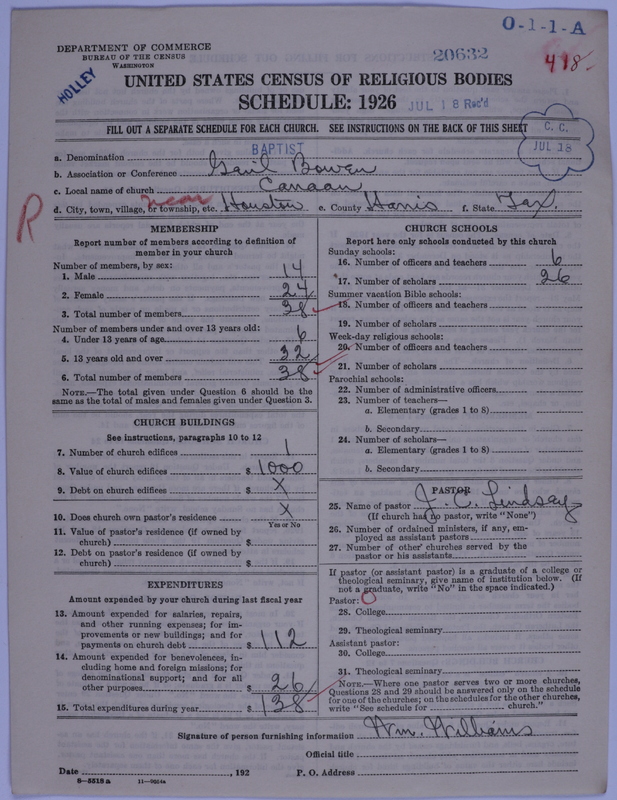 O-1-1-A
DEPARTMENT OF COMMERCE
BUREAU OF THE CENSUS
WASHINGTON
20632
418-
HOLLEY
UNITED STATES CENSUS OF RELIGIOUS BODIES
SCHEDULE: 1926
JUL 18 Rec'd
FILL OUT A SEPARATE SCHEDULE FOR EACH CHURCH. SEE INSTRUCTIONS ON THE BACK OF THIS SHEET
C. C.
JUL 18
a. Denomination BAPTIST
b. Association or Conference Gail Bowen
c. Local name of church Canaan
near
d. City, town, village, or township, etc. Houston e. County Harris f. State Tax.
R
MEMBERSHIP
Report number of members according to definition of
member in your church
Number of members, by sex:
1. Male 14
2. Female 24
3. Total number of members 38
Number of members under and over 13 years old:
4. Under 13 years of age 6
5. 13 years old and over 32
6. Total number of members 38
NOTE.—The total given under Question 6 should be the
same as the total of males and females given under Question 3.
CHURCH BUILDINGS
See instructions, paragraphs 10 to 12
7. Number of church edifices 1
8. Value of church edifices $ 1000
9. Debt on church edifices $ X
10. Does church own pastor's residence X
Yes or No
11. Value of pastor's residence (if owned by
church) $
12. Debt on pastor's residence (if owned by
church) $
EXPENDITURES
Amount expended by your church during last fiscal year
13. Amount expended for salaries, repairs,
and other running expenses; for im-
provements or new buildings; and for
payments on church debt $ 112
14. Amount expended for benevolences, in-
cluding home and foreign missions; for
denominational support; and for all
other purposes $ 26
15. Total expenditures during year $ 138
CHURCH SCHOOLS
Report here only schools conducted by this church
Sunday schools:
16. Number of officers and teachers 6
17. Number of scholars 26
Summer vacation Bible schools:
18. Number of officers and teachers
19. Number of scholars
Week-day religious schools:
20. Number of officers and teachers
21. Number of scholars
Parochial schools:
22. Number of administrative officers
23. Number of teachers—
a. Elementary (grades 1 to 8)
b. Secondary
24. Number of scholars—
a. Elementary (grades 1 to 8)
b. Secondary
PASTOR
25. Name of pastor J. C. Lindsay
(If church has no pastor, write "None")
26. Number of ordained ministers, if any, em-
ployed as assistant pastors
27. Number of other churches served by the
pastor or his assistants
If pastor (or assistant pastor) is a graduate of a college or
theological seminary, give name of institution below. (If
not a graduate, write "No" in the space indicated.)
Pastor: O
28. College
29. Theological seminary
Assistant pastor:
30. College
31. Theological seminary
NOTE.—Where one pastor serves two or more churches,
Questions 28 and 29 should be answered only on the schedule
for one of the churches; on the schedules for the other churches,
write "See schedule for church."
Signature of person furnishing information Wm. Williams
Official title
Date , 192 P. O. Address
8-5518a 11-9664a